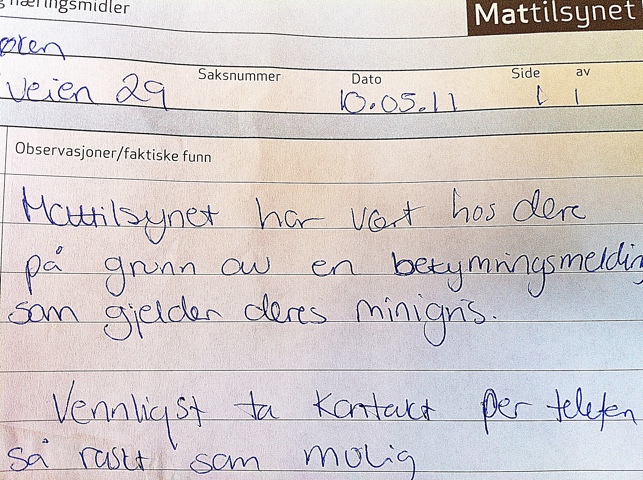 næringsmidler
Mattilsynet
øren
veien 29
Saksnummer
Dato
10.05.11
Side
av
1
1
Observasjoner/faktiske funn
Mattilsynet har vært hos dere
på grunn av en bekymringsmeldin
som gjelder deres minigris.
Vennligst ta kontakt per telefon
så raskt som mulig